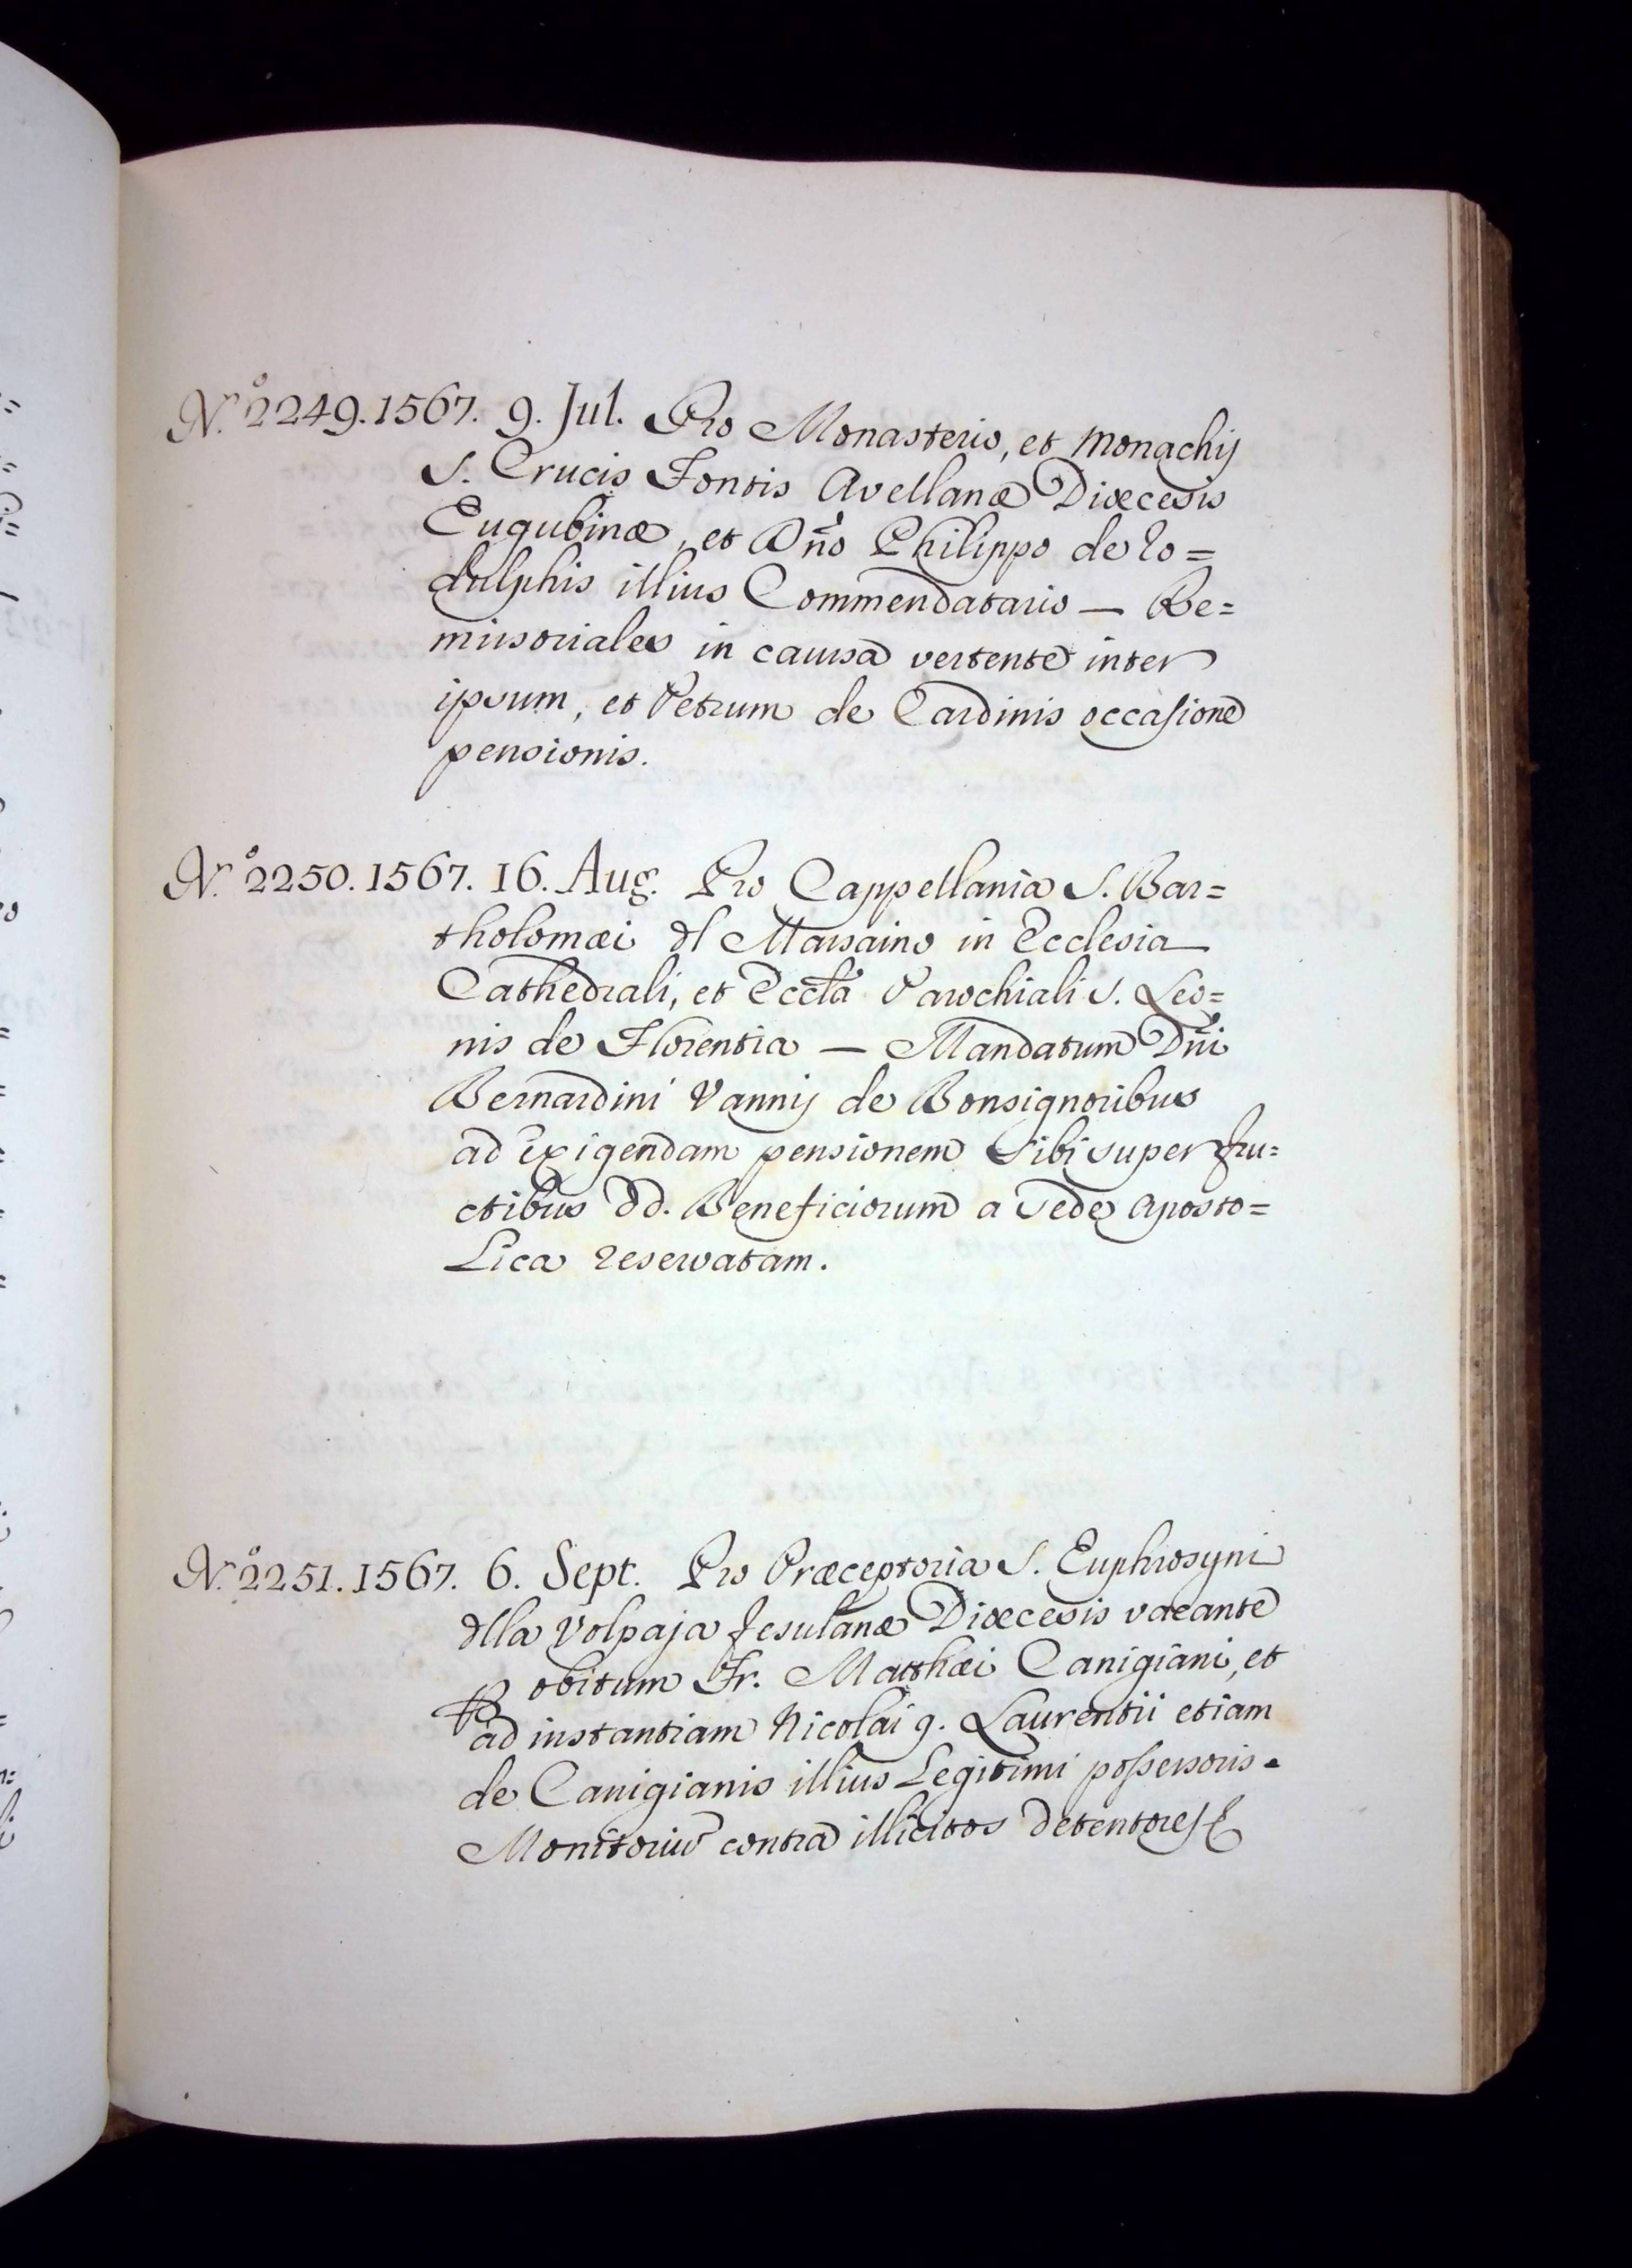 N.º 2249. 1567. 9. Jul. Pro Monasterio, et Monachij
S. Crucis Fontis Avellanæ Diœcesis
Eugubinæ, et Dño Philippo de ro=
dulphis illius Commendatario — Re=
missoriales in causa vertente inter
ipsum, et Petrum de Cardinis occasione
pensionis.
N.º 2250. 1567. 16. Aug. Pro Cappellania S. Bar=
tholomæi dl Marsaino in Ecclesia
Cathedrali, et Eccla Parochiali S. Leo=
nis de Florentia — Mandatum Dñi
Bernardini Vannij de Bonsignoribus
ad Exigendam pensionem Sibi super fru=
ctibus dd. Beneficiorum a Sede Aposto=
Lica reservatam.
N.º 2251. 1567. 6. Sept. Pro Præceptoria S. Euphrosyni
dlla Volpaja fesulanæ Diœcesis vacante
P obitum Fr. Matthæi Canigiani, et
ad instantiam Nicolai q. Laurentii etiam
de Canigianis illius Legitimi possessoris =
Monitoriu contra illicitos detentores